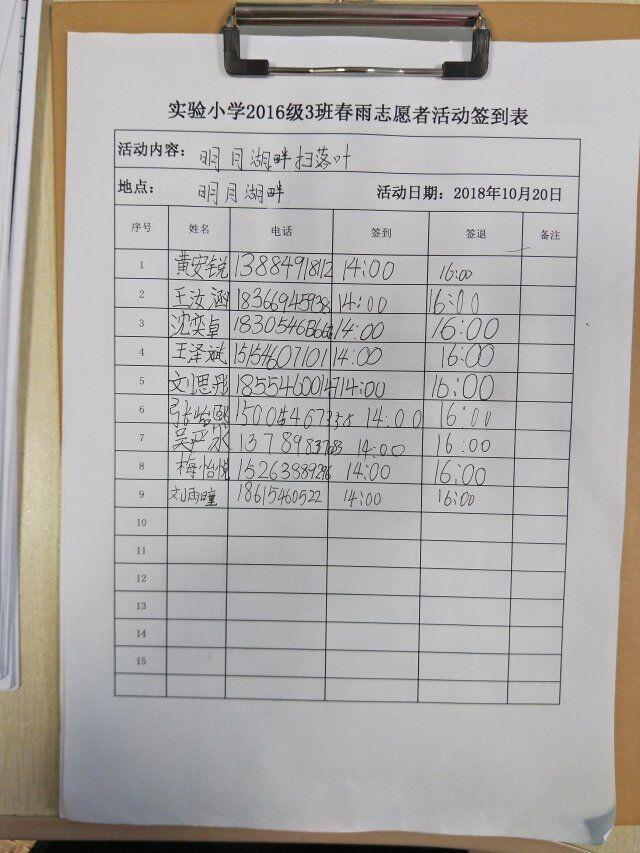 实验小学2016级3班春雨志愿者活动签到表
活动内容: 明月湖畔扫落叶
地点: 明月湖畔 活动日期: 2018年10月20日
序号 姓名 电话 签到 签退 备注
1 黄安锐 13884918112 14:00 16:00
2 王汝涵 18366945938 14:00 16:00
3 沈奕卓 14:00 16:00
4 王泽斌 15154607101 14:00 16:00
5 刘思彤 18554600147 14:00 16:00
6 张怡熙 14:00 16:00
7 14:00 16:00
8 梅怡悦 15263889296 14:00 16:00
9 刘雨瞳 18615460522 14:00 16:00
10
11
12
13
14
15